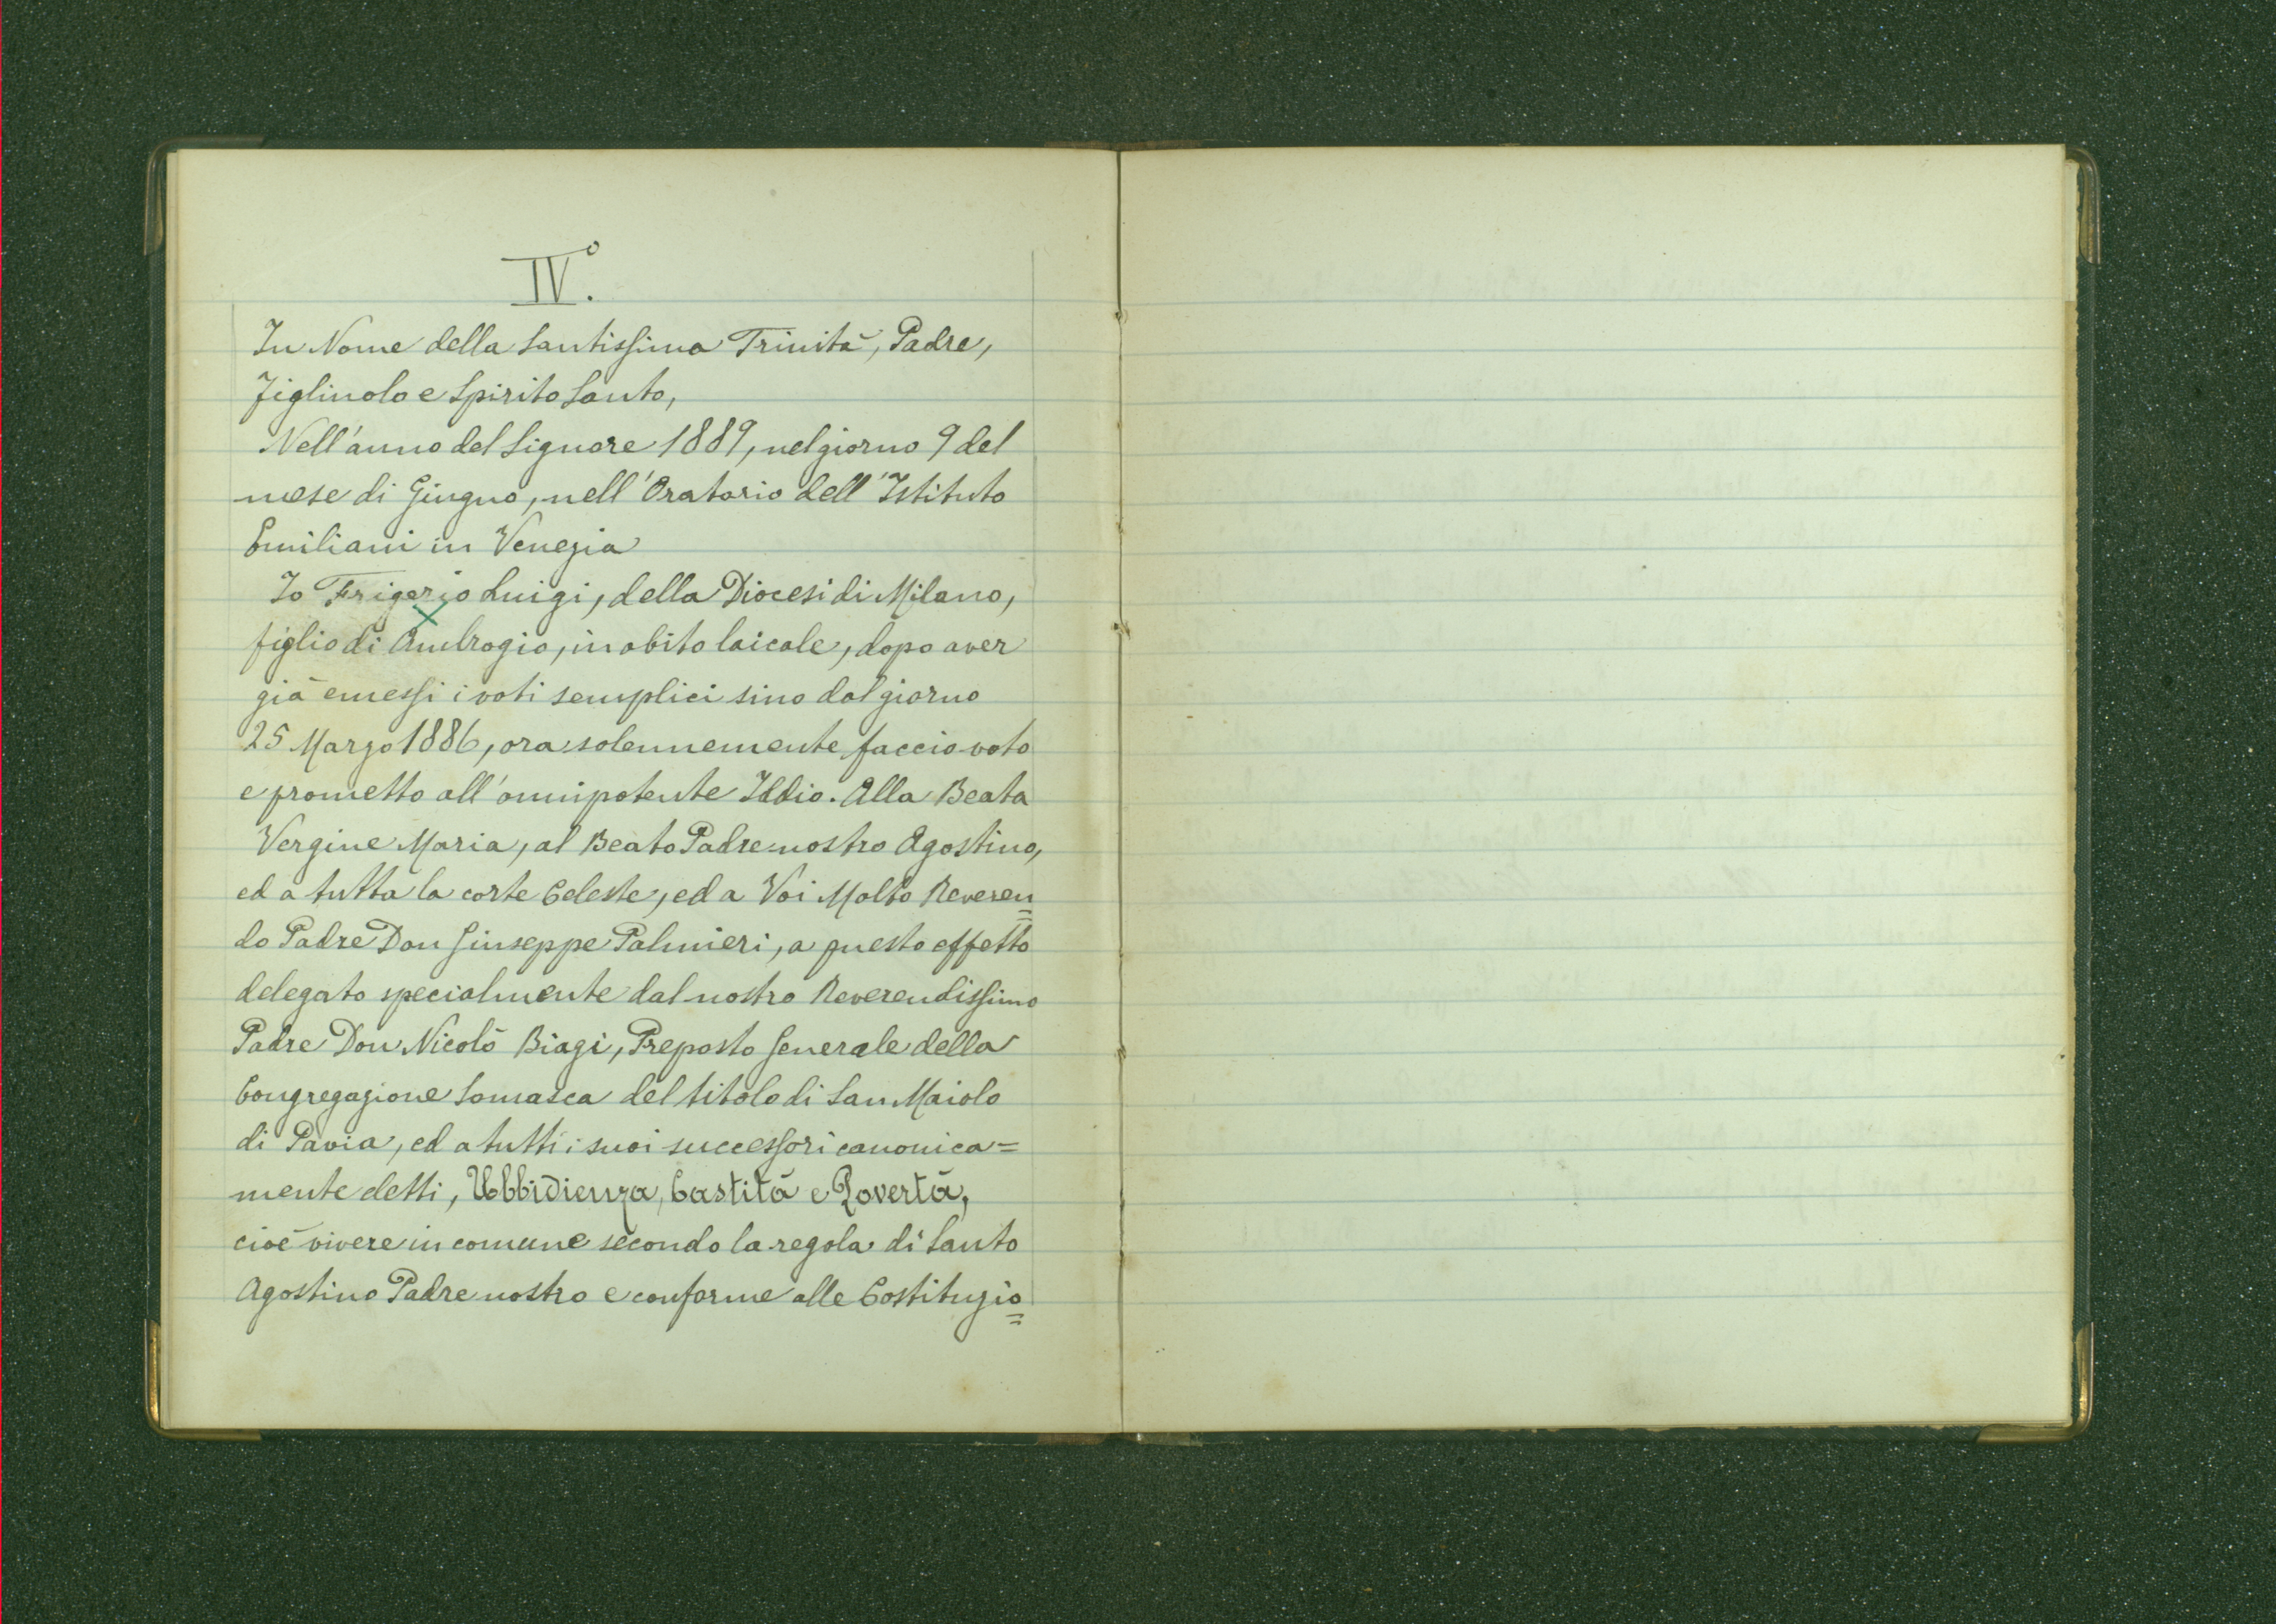 IV.°
In Nome della Santissima Trinità, Padre,
Figliuolo e Spirito Santo,
Nell'anno del Signore 1889, nel giorno 9 del
mese di Giugno, nell'Oratorio dell'Istituto
Emiliani in Venezia
Io Frigerio Luigi, della Diocesi di Milano,
figlio di Ambrogio, in abito laicale, dopo aver
già emessi i voti semplici sino dal giorno
25 Marzo 1886, ora solennemente faccio voto
e prometto all'omnipotente Iddio. Alla Beata
Vergine Maria, al Beato Padre nostro Agostino,
ed a tutta la corte Celeste, ed a Voi Molto Reveren=
do Padre Don Giuseppe Palmieri, a questo effetto
delegato specialmente dal nostro Reverendissimo
Padre Don Nicolò Biagi, Preposto Generale della
Congregazione Somasca del titolo di San Maiolo
di Pavia, ed a tutti i suoi successori canonica=
mente eletti, Ubbidienza, Castità e Povertà,
cioè vivere in comune secondo la regola di Santo
Agostino Padre nostro e conforme alle Costituzio=